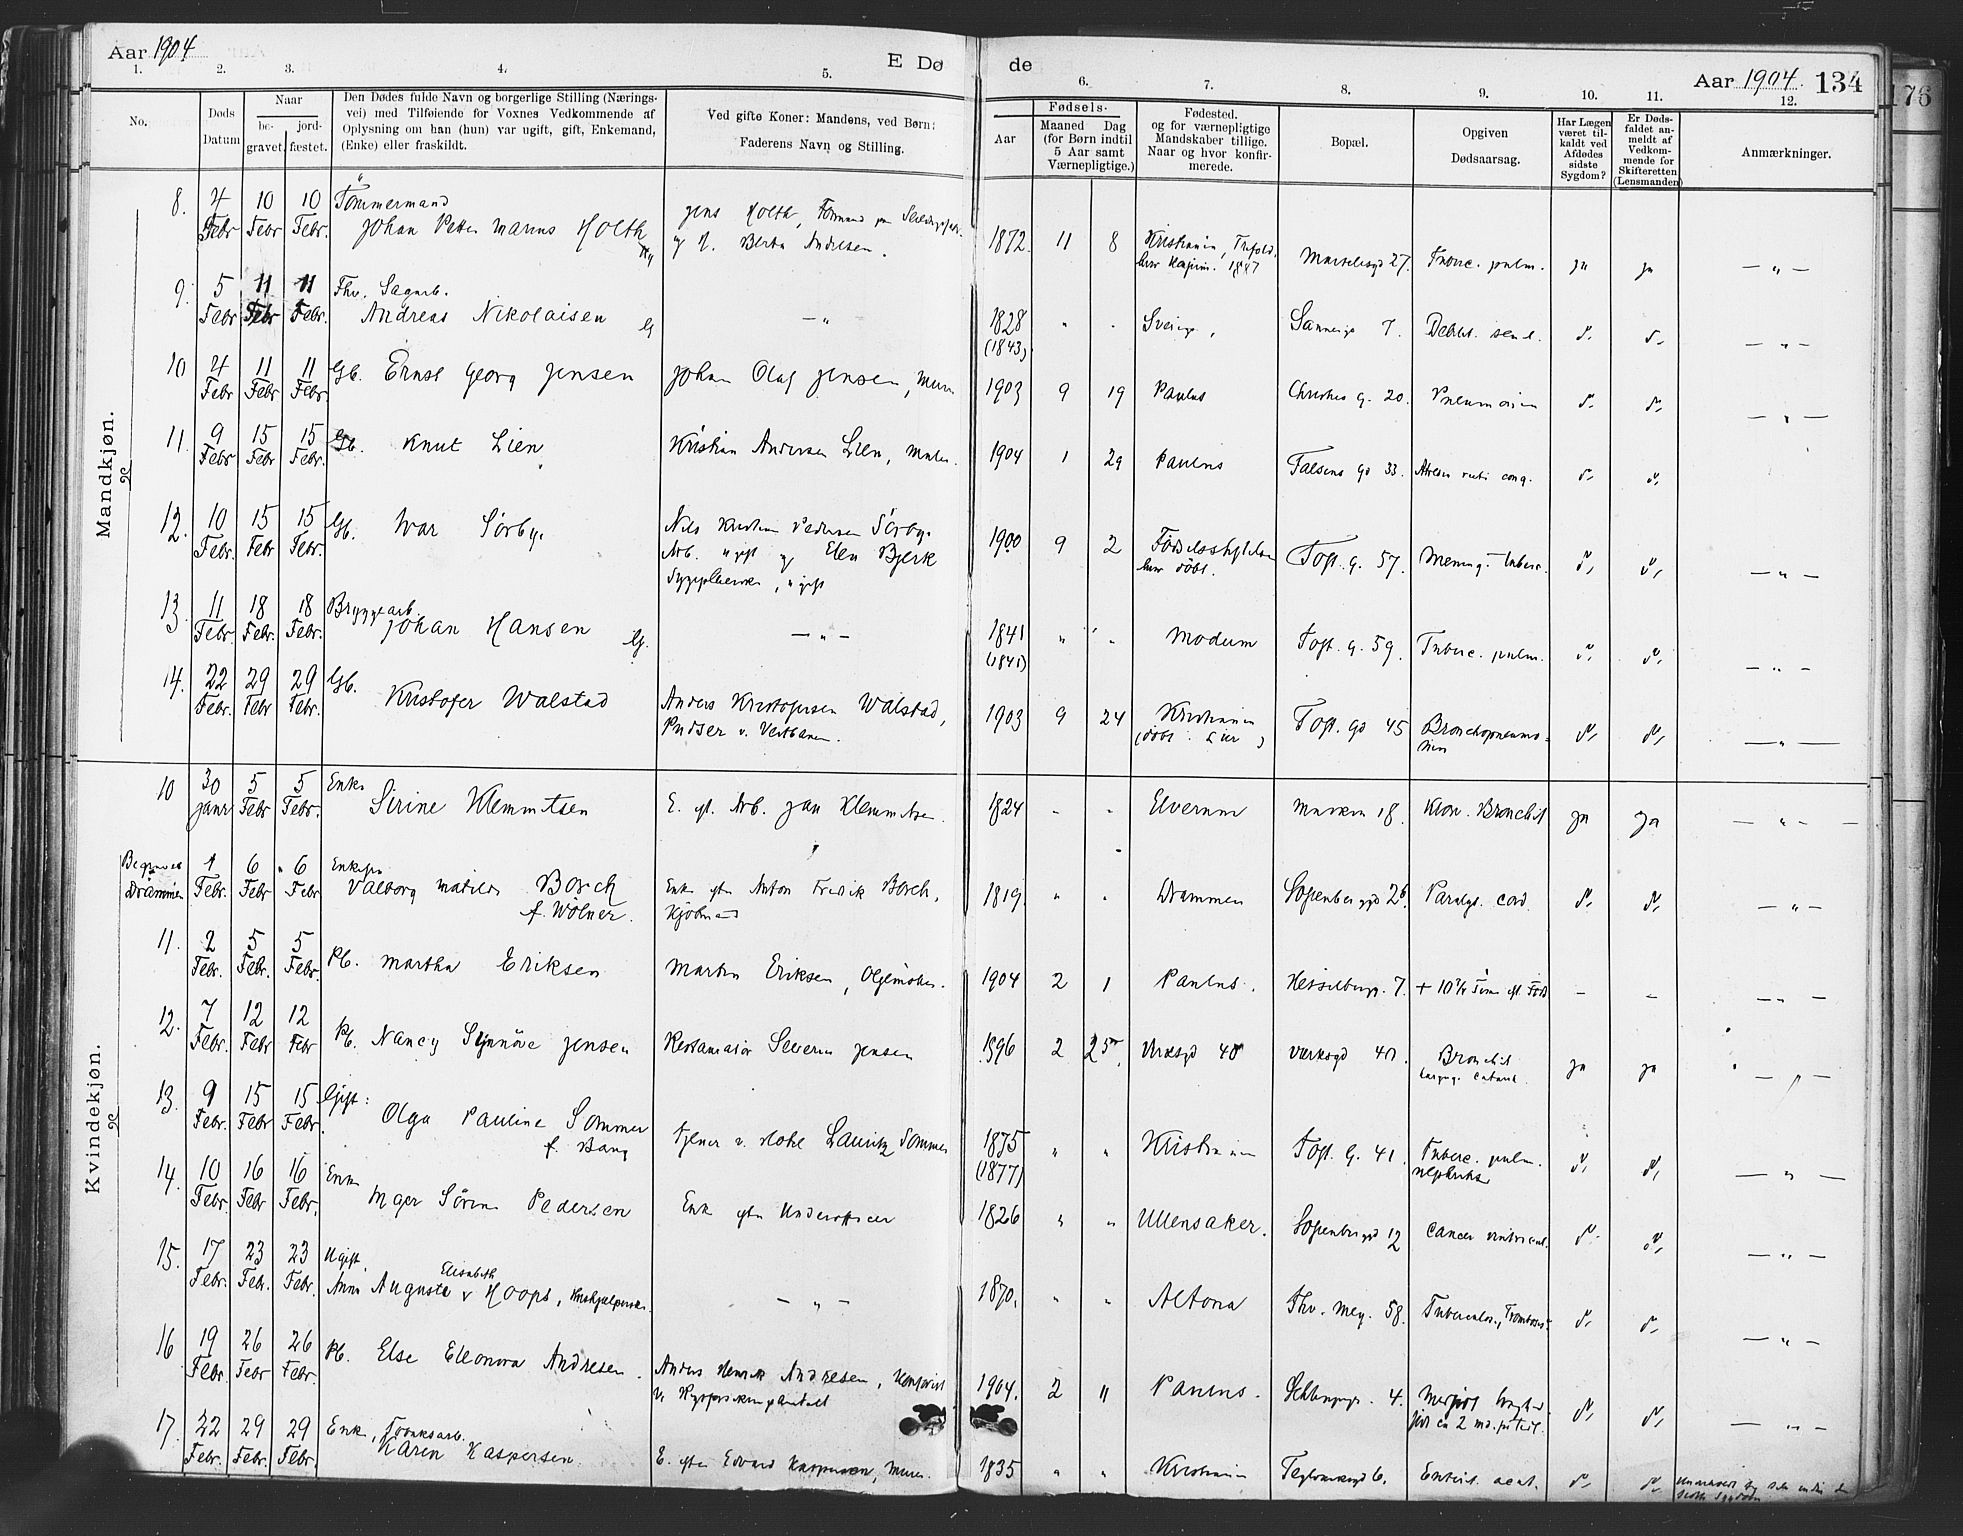 Aar 1904
E Dø de
Aar 1904. 134
176
1. 2. 3. 4. 5. 6. 7. 8. 9. 10. 11. 12.
No.
Døds Datum
Naar
be- gravet.
jord- fæstet.
Den Dødes fulde Navn og borgerlige Stilling (Nærings-
vei) med Tilføiende for Voxnes Vedkommende af
Oplysning om han (hun) var ugift, gift, Enkemand,
(Enke) eller fraskildt.
Ved gifte Koner: Mandens, ved Børn:
Faderens Navn og Stilling.
Fødsels-
Aar
Maaned Dag
(for Børn indtil
5 Aar samt
Værnepligtige.)
Fødested.
og for værnepligtige
Mandskaber tillige.
Naar og hvor konfir-
merede.
Bopæl.
Opgiven
Dødsaarsag.
Har Lægen
været til-
kaldt ved
Afdødes
sidste
Sygdom?
Er Døds-
faldet an-
meldt af
Vedkom-
mende for
Skifteretten
(Lensmanden)
Anmærkninger.
Mandkjøn.
8. 4 Febr 10 Febr 10 Febr. Tømmermand
Johan Petter Marius Holth
Jens Holth, Formand
Berta Andresen.
1872 11 8 Kristiania, 27. Tuberc. pulm. ja ja — " —
9. 5 Febr 11 Febr 11 Febr. Fhv. Sagarb.
Andreas Nikolaisen G — "
1828 (1843) " " Sverige, Sannerg 7. Debilit. senil. d. d. — " —
10 4 Febr 11 Febr 11 Febr. Gb. Ernst Georg Jensen
Johan Olaf Jensen, Murer
1903 9 19 Paulus Christies g. 20. Pneumonia d. d. — " —
11. 9 Febr 15 Febr 15 Febr. Gb. Knut Lien
Kristian Andersen Lien, Maler.
1904 1 29 Paulus Falsens gd 33. cong. d. d.
12. 10 Febr. 15 Febr 15 Febr. Gb. Ivar Sørby.
Nils Kristian Pedersen Sørby.
Arb. ugift og Elen Bjerk
ugift
1900 9 2 Fødselsstiftelsen
døbt.
Toft. g. 57. Mening. tuberc. d. d. — " —
13. 11 Febr 18 Febr. 18 Febr. Bryggearb.
Johan Hansen G. — " —
1841 (1841) " " Modum Toft. g. 59. Tuberc. pulm. d. d. — " —
14. 22 Febr. 29 Febr 29 Febr. Gb.
Kristofer Walstad
Anders Kristofersen Walstad,
Pudser v. Vestbanen.
1903 9 24 Kristiania
(døbt i Lier)
Toft. gd 45 Bronchopneumo=
nien d. d. — " —
Kvindekjøn.
10 30 Janr 5 Febr 5 Febr. Enke
Sirine Klemmetsen
E. ef. Arb. Jan Klemmetsen.
1824 - " Elverum Marken 18. Kron. Bronchit ja ja — " —
Begravet
Drammen
1 Febr. 6 Febr 6 Febr Enkefru
Valborg Matilde Borch
f. Wølner.
Enke efter Anton Fredrik Borch,
Kjøbmand
1819. " " Drammen Sofienberggd 26. Paralys. cord. d. d. — " —
11. 2 Febr. 5 Febr. 5 Febr. Pb. Martha Eriksen
Martin Eriksen,
1904 2 1 Paulus. Hesselbergs. 7. - - — " —
12. 7 Febr. 12 Febr 12 Febr Pb. Nancy Synnöve Jensen
Restauratør Severin Jensen
1896 2 25. 40 Verksgd 40. Bronchit
ja ja — " —
13. 9 Febr. 15 Febr 15 Febr. Gift:
Olga Pauline Sommer
f. Bang
Tjener v. Hotel Lauritz Sommer
1875 (1877) " " Kristiania Toft. G. 41. Tuberc. pulm.
d. d. — " —
14. 10 Febr. 16 Febr 16 Febr. Enke
Inger Sørine Pedersen
Enke efter Underofficer
1826 " " Ullensaker. Sofienberggd 12 Cancer ventricul. d. d. — " —
15. 17 Febr. 23 Febr. 23 Febr. Ugift,
Elisabeth
Anna Augusta v Hoops,
— " —
1870. " " Altona Thv. Mey. 58. Tuberculos., d. d. — " —
16 19 Febr. 26 Febr 26 Febr. Pb. Else Eleonora Andresen.
Anders Henrik Andresen,
1904. 2 " Paulus. 4. d. d. — " —
17. 22 Febr. 29 Febr. 29 Febr. Enke,
Karen Kaspersen.
E. efter Edvard Kaspersen, Murer.
1835 " " Kristiania Teglverksgd 6. Enterit. acut. d. d.